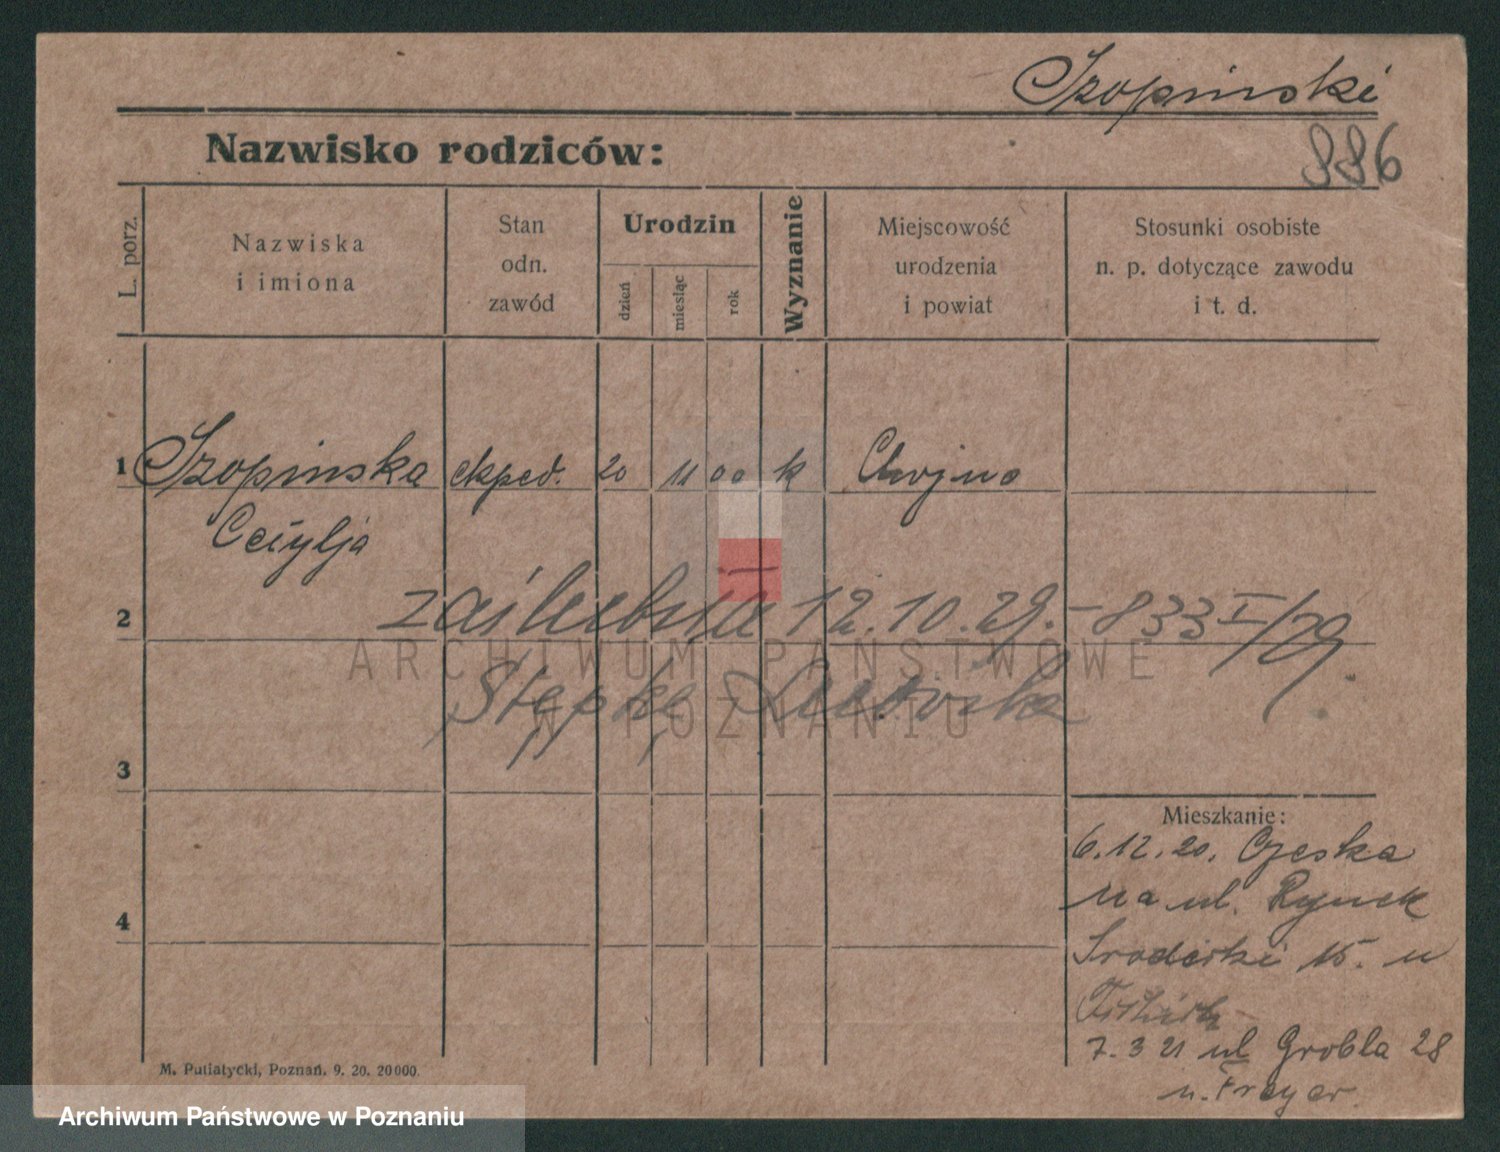 Szopinski
886
Nazwisko rodziców:
L. porz.
Nazwiska
i imiona
Stan
odn.
zawód
Urodzin
dzień
miesiąc
rok
Wyznanie
Miejscowość
urodzenia
i powiat
Stosunki osobiste
n. p. dotyczące zawodu
i t. d.
1 Szopinska eksped. 20 11 00 k Chojno
Cecylja
2 zaślubiła 12.10.29. - 833 I/29.
Stępkę Ludwika
3
Mieszkanie:
6.12.20. Czeska
na ul. Rynek
4
Srodecki 15. u
7.3 21 ul Grobla 28
u. Freyer
M. Putiatycki, Poznań. 9. 20. 20000.
ARCHIWUM PAŃSTWOWE
W POZNANIU
Archiwum Państwowe w Poznaniu